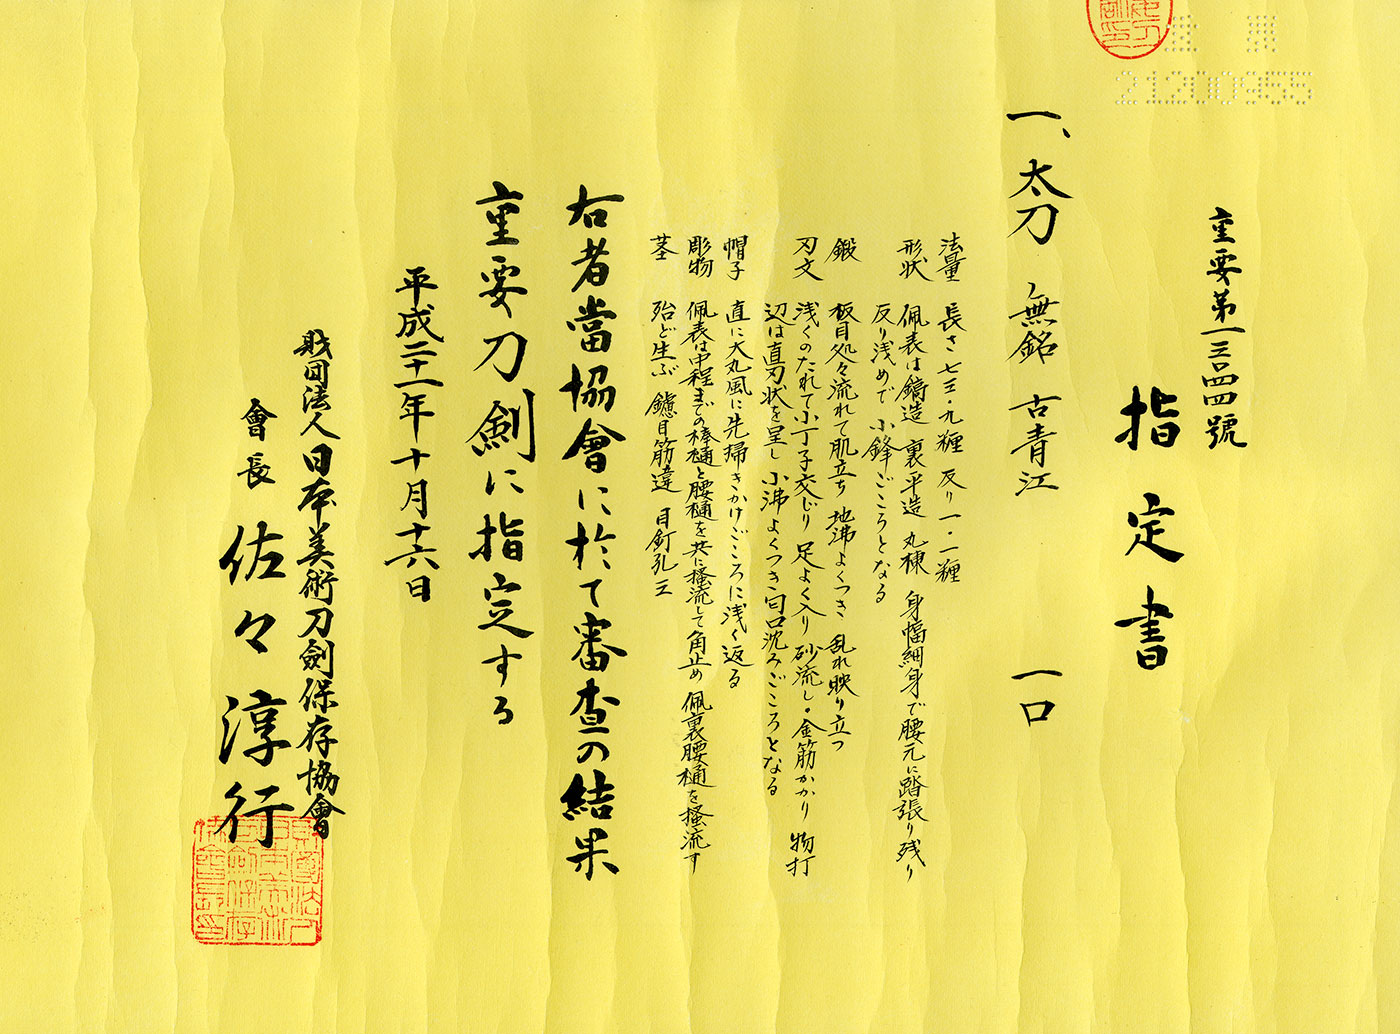 重要第一三〇四四號
指定書
一、太刀 無銘 古青江 一口
法量 長さ 七三・九糎 反り 一・一糎
形状 佩表は鎬造 裏平造 丸棟 身幅細身で腰元に踏張り残り
反り浅めで 小鋒ごころとなる
鍛 板目処々流れて肌立ち 地沸よくつき 乱れ映り立つ
刃文 浅くのたれて小丁子交じり 足よく入り 砂流し・金筋かかり 物打
辺は直刃状を呈し 小沸よくつき匂口沈みごころとなる
帽子 直に大丸風に先掃きかけごころに浅く返る
彫物 佩表は中程までの棒樋と腰樋を共に掻流して角止め 佩裏腰樋を掻流す
茎 殆ど生ぶ 鑢目筋違 目釘孔三
右者當協會に於て審査の結果
重要刀剣に指定する
平成二十一年十月十六日
財団法人日本美術刀剣保存協會
會長 佐々淳行
21200955